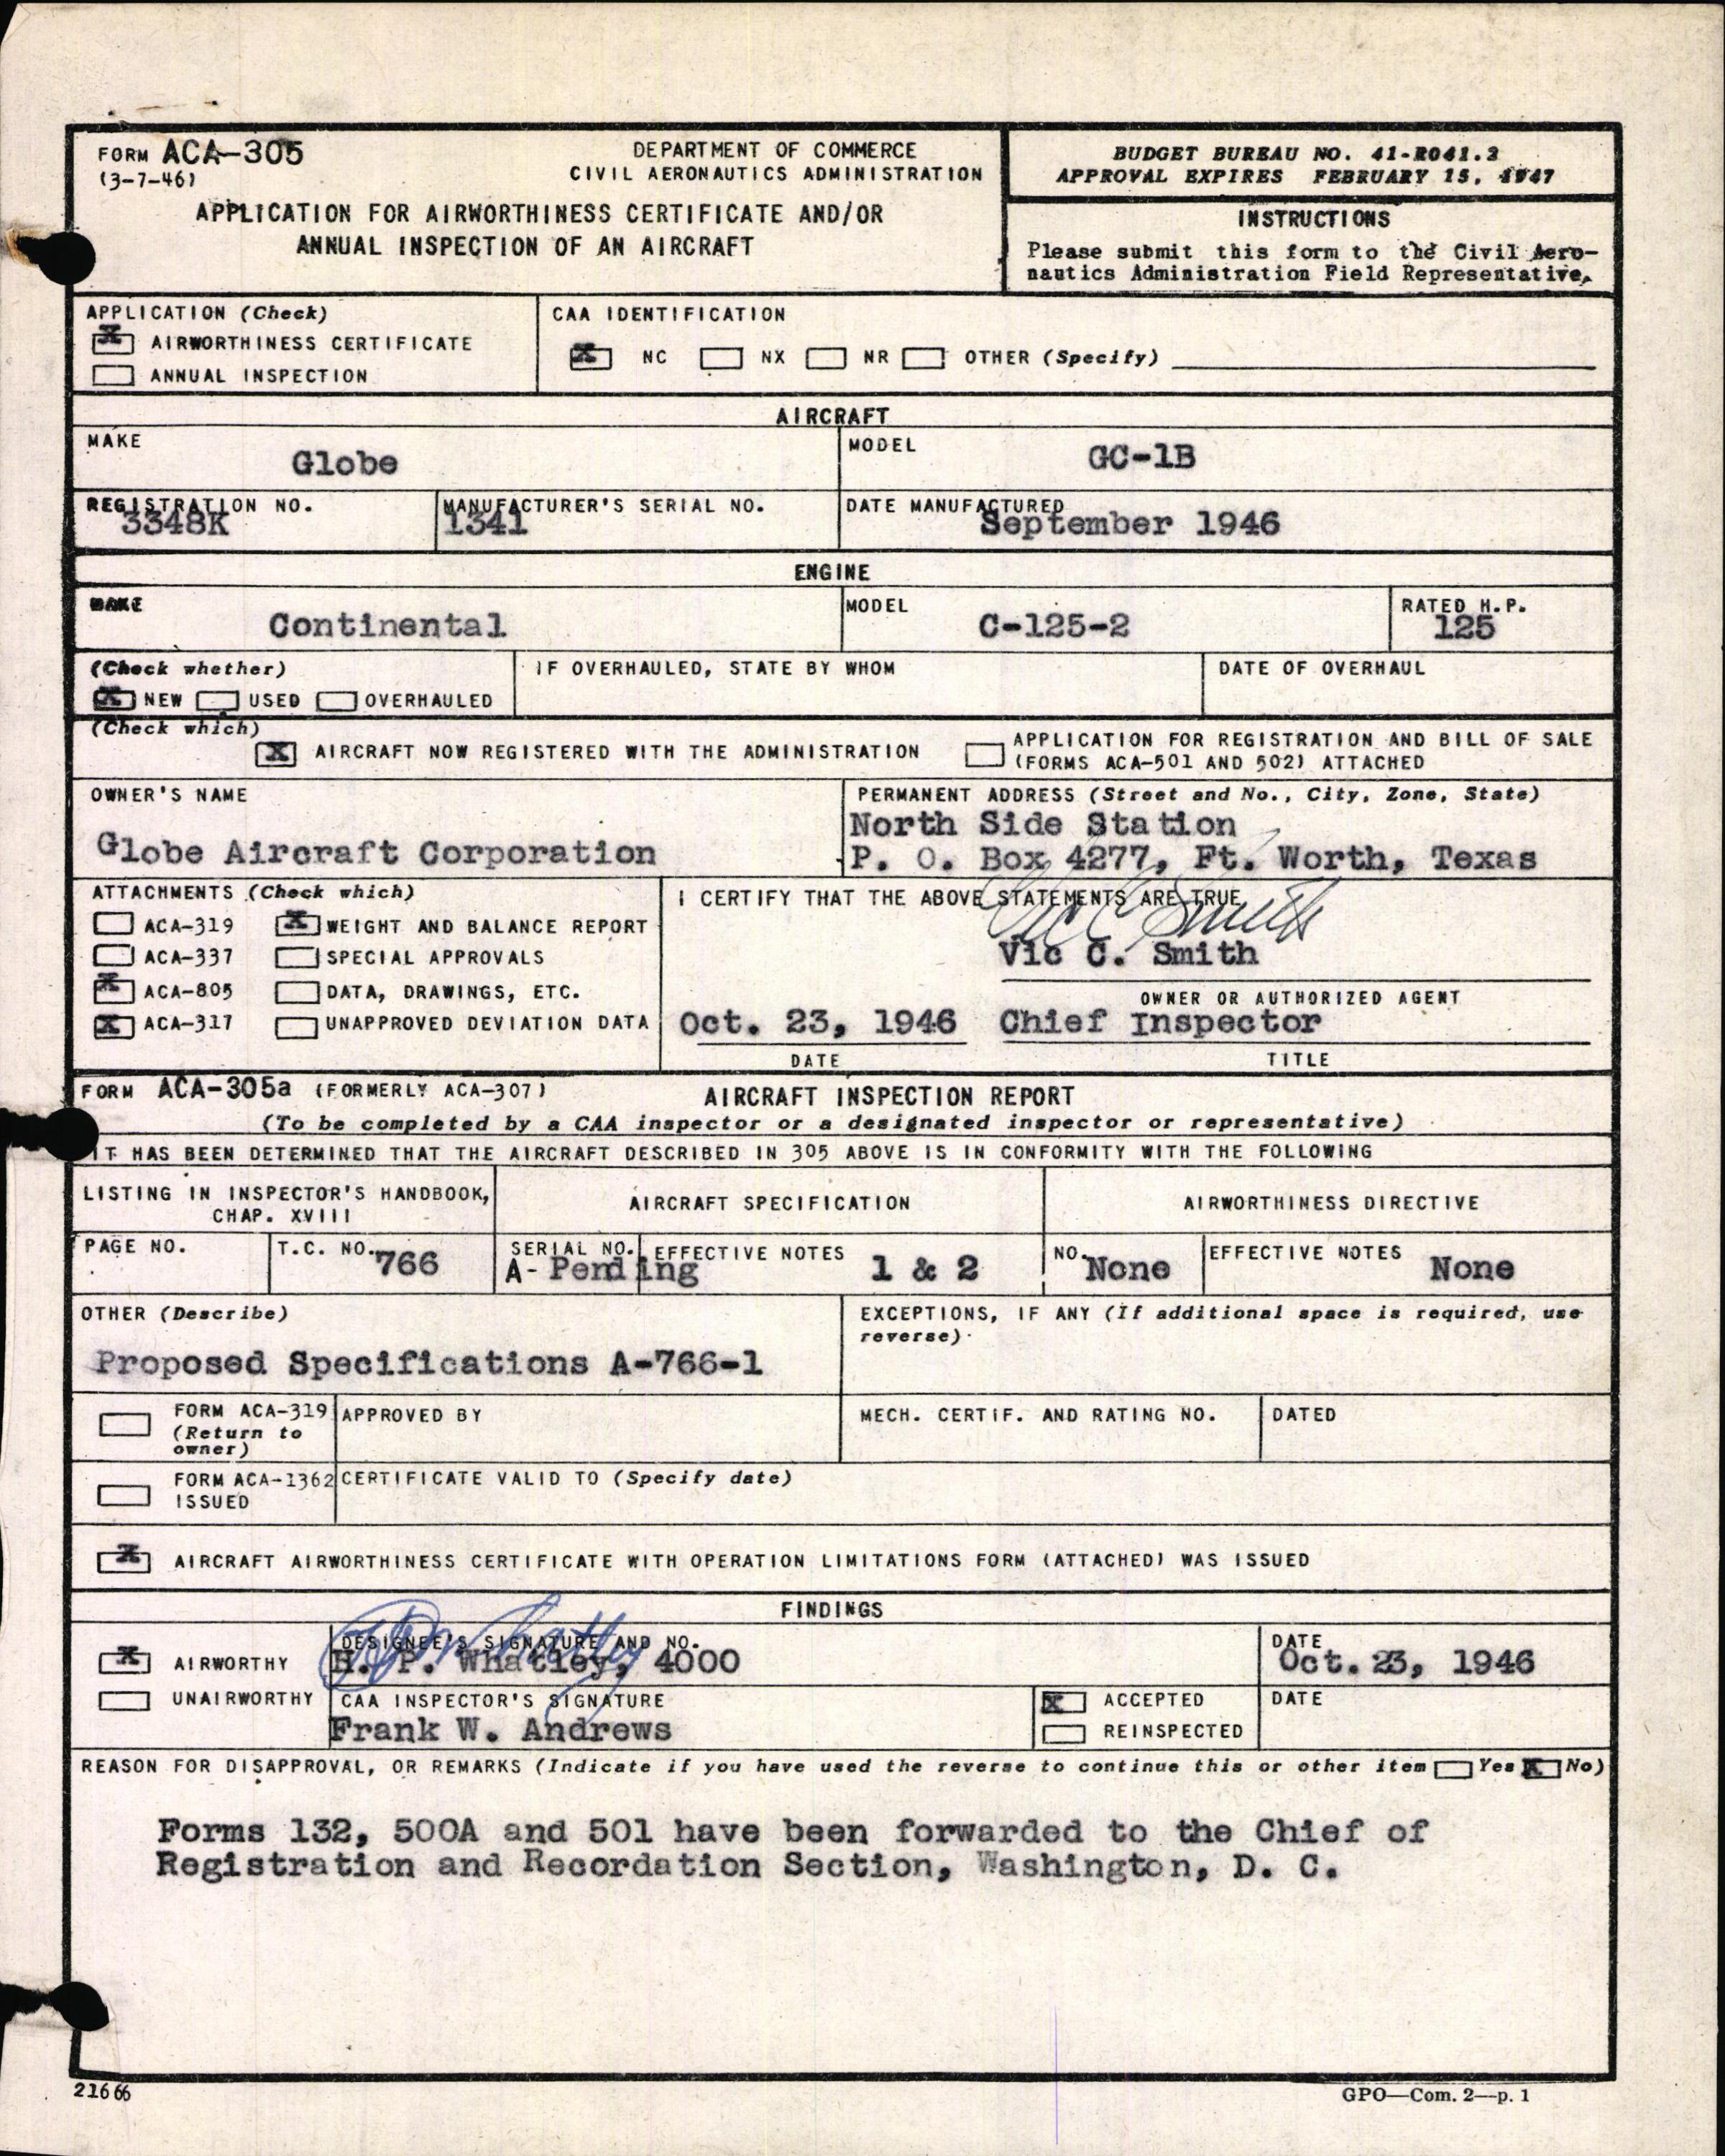 FORM ACA-305
(3-7-46)
DEPARTMENT OF COMMERCE
CIVIL AERONAUTICS ADMINISTRATION
APPLICATION FOR AIRWORTHINESS CERTIFICATE AND/OR
ANNUAL INSPECTION OF AN AIRCRAFT
BUDGET BUREAU NO. 41-R041.2
APPROVAL EXPIRES FEBRUARY 15, 1947
INSTRUCTIONS
Please submit this form to the Civil Aero-
nautics Administration Field Representative.
APPLICATION (Check)
X AIRWORTHINESS CERTIFICATE
ANNUAL INSPECTION
CAA IDENTIFICATION
X NC NX NR OTHER (Specify)
AIRCRAFT
MAKE
Globe
MODEL
GC-1B
REGISTRATION NO.
3348K
MANUFACTURER'S SERIAL NO.
1341
DATE MANUFACTURED
September 1946
ENGINE
MAKE
Continental
MODEL
C-125-2
RATED H.P.
125
(Check whether)
X NEW USED OVERHAULED
IF OVERHAULED, STATE BY WHOM
DATE OF OVERHAUL
(Check which)
X AIRCRAFT NOW REGISTERED WITH THE ADMINISTRATION
APPLICATION FOR REGISTRATION AND BILL OF SALE
(FORMS ACA-501 AND 502) ATTACHED
OWNER'S NAME
Globe Aircraft Corporation
PERMANENT ADDRESS (Street and No., City, Zone, State)
North Side Station
P. O. Box 4277, Ft. Worth, Texas
ATTACHMENTS (Check which)
ACA-319 X WEIGHT AND BALANCE REPORT
ACA-337 SPECIAL APPROVALS
X ACA-805 DATA, DRAWINGS, ETC.
X ACA-317 UNAPPROVED DEVIATION DATA
I CERTIFY THAT THE ABOVE STATEMENTS ARE TRUE
Vic C Smith
Vic C. Smith
OWNER OR AUTHORIZED AGENT
Oct. 23, 1946 Chief Inspector
DATE TITLE
FORM ACA-305a (FORMERLY ACA-307) AIRCRAFT INSPECTION REPORT
(To be completed by a CAA inspector or a designated inspector or representative)
IT HAS BEEN DETERMINED THAT THE AIRCRAFT DESCRIBED IN 305 ABOVE IS IN CONFORMITY WITH THE FOLLOWING
LISTING IN INSPECTOR'S HANDBOOK,
CHAP. XVIII
AIRCRAFT SPECIFICATION
AIRWORTHINESS DIRECTIVE
PAGE NO.
T.C. NO. 766
SERIAL NO.
A- Pending
EFFECTIVE NOTES 1 & 2
NO. None
EFFECTIVE NOTES None
OTHER (Describe)
Proposed Specifications A-766-1
EXCEPTIONS, IF ANY (If additional space is required, use
reverse)
FORM ACA-319
(Return to
owner)
APPROVED BY
MECH. CERTIF. AND RATING NO.
DATED
FORM ACA-1362
ISSUED
CERTIFICATE VALID TO (Specify date)
X AIRCRAFT AIRWORTHINESS CERTIFICATE WITH OPERATION LIMITATIONS FORM (ATTACHED) WAS ISSUED
FINDINGS
X AIRWORTHY
UNAIRWORTHY
DESIGNEE'S SIGNATURE AND NO.
H. P. Whatley, 4000
DATE
Oct. 23, 1946
CAA INSPECTOR'S SIGNATURE
Frank W. Andrews
X ACCEPTED
REINSPECTED
DATE
REASON FOR DISAPPROVAL, OR REMARKS (Indicate if you have used the reverse to continue this or other item Yes X No)
Forms 132, 500A and 501 have been forwarded to the Chief of
Registration and Recordation Section, Washington, D. C.
21666
GPO—Com. 2—p. 1